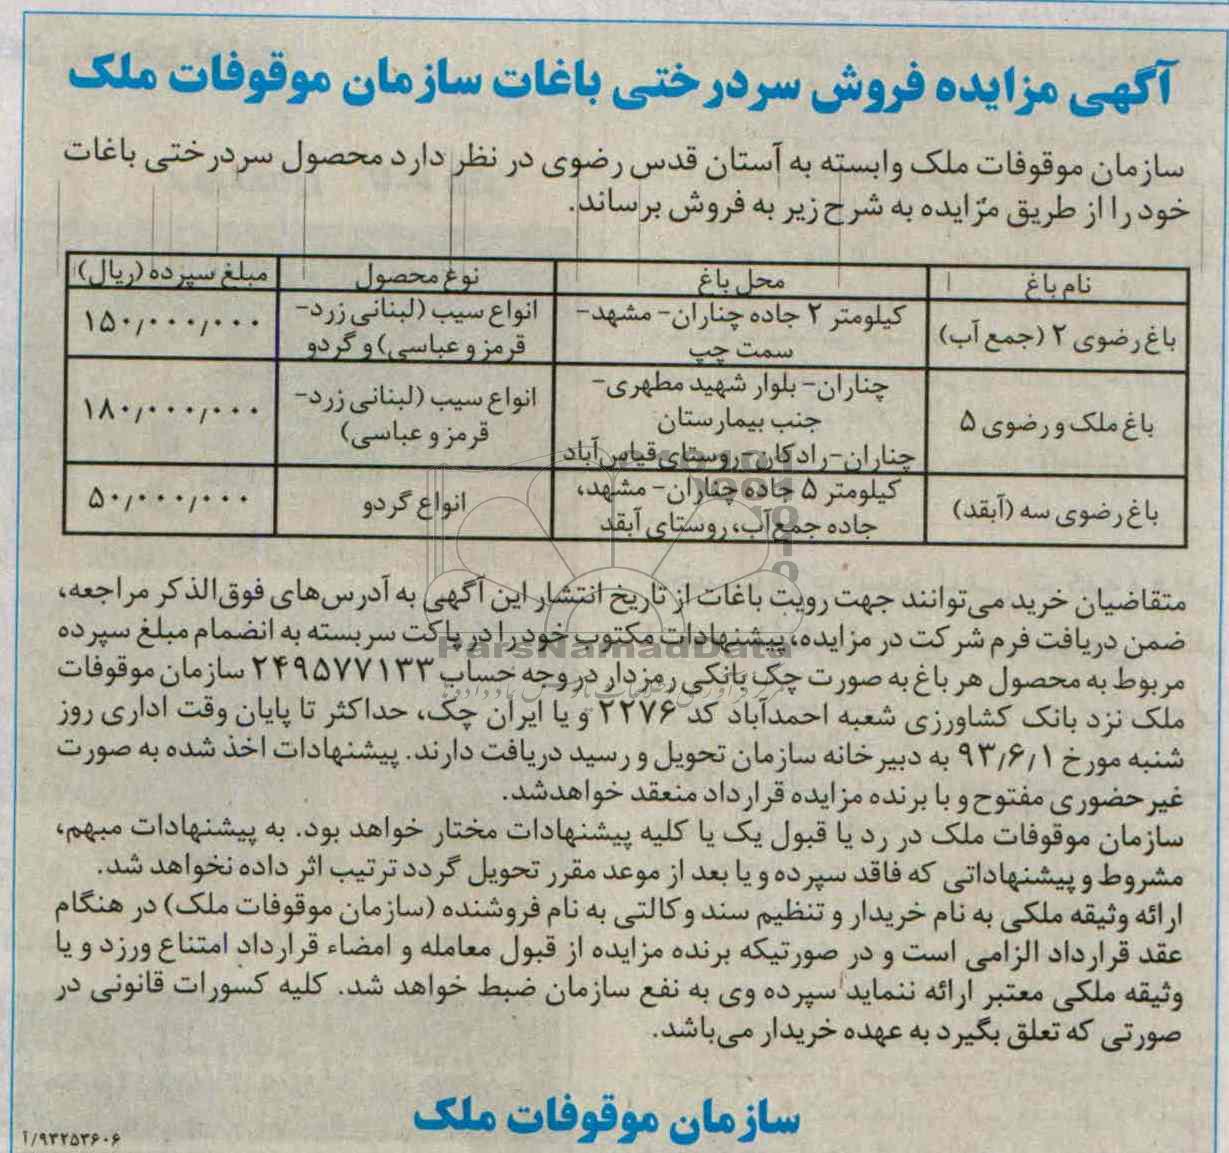 آگهی مزایده فروش سردرختی باغات سازمان موقوفات ملک
سازمان موقوفات ملک وابسته به آستان قدس رضوی در نظر دارد محصول سردرختی باغات
خود را از طریق مزایده به شرح زیر به فروش برساند.
نام باغ | محل باغ | نوع محصول | مبلغ سپرده (ریال)
باغ رضوی ۲ (جمع آب) | کیلومتر ۲ جاده چناران- مشهد- | انواع سیب (لبنانی زرد- | ۱۵۰/۰۰۰/۰۰۰
سمت چپ | قرمز و عباسی) و گردو
باغ ملک و رضوی ۵ | چناران- بلوار شهید مطهری- | انواع سیب (لبنانی زرد- | ۱۸۰/۰۰۰/۰۰۰
جنب بیمارستان | قرمز و عباسی)
چناران-رادکان-روستای قیاس‌آباد
باغ رضوی سه (آبقد) | کیلومتر ۵ جاده چناران- مشهد، | انواع گردو | ۵۰/۰۰۰/۰۰۰
جاده جمع‌آب، روستای آبقد
متقاضیان خرید می‌توانند جهت رویت باغات از تاریخ انتشار این آگهی به آدرس‌های فوق‌الذکر مراجعه،
ضمن دریافت فرم شرکت در مزایده، پیشنهادات مکتوب خود را در پاکت سربسته به انضمام مبلغ سپرده
مربوط به محصول هر باغ به صورت چک بانکی رمزدار در وجه حساب ۲۴۹۵۷۷۱۳۳ سازمان موقوفات
ملک نزد بانک کشاورزی شعبه احمدآباد کد ۲۲۷۶ و یا ایران چک، حداکثر تا پایان وقت اداری روز
شنبه مورخ ۹۳/۶/۱ به دبیرخانه سازمان تحویل و رسید دریافت دارند. پیشنهادات اخذ شده به صورت
غیر حضوری مفتوح و با برنده مزایده قرارداد منعقد خواهدشد.
سازمان موقوفات ملک در رد یا قبول یک یا کلیه پیشنهادات مختار خواهد بود. به پیشنهادات مبهم،
مشروط و پیشنهاداتی که فاقد سپرده و یا بعد از موعد مقرر تحویل گردد ترتیب اثر داده نخواهد شد.
ارائه وثیقه ملکی به نام خریدار و تنظیم سند وکالتی به نام فروشنده (سازمان موقوفات ملک) در هنگام
عقد قرارداد الزامی است و در صورتیکه برنده مزایده از قبول معامله و امضاء قرارداد امتناع ورزد و یا
وثیقه ملکی معتبر ارائه ننماید سپرده وی به نفع سازمان ضبط خواهد شد. کلیه کسورات قانونی در
صورتی که تعلق بگیرد به عهده خریدار می‌باشد.
سازمان موقوفات ملک
۹۳۲۵۳۶۰۶/آ
ParsNamadData